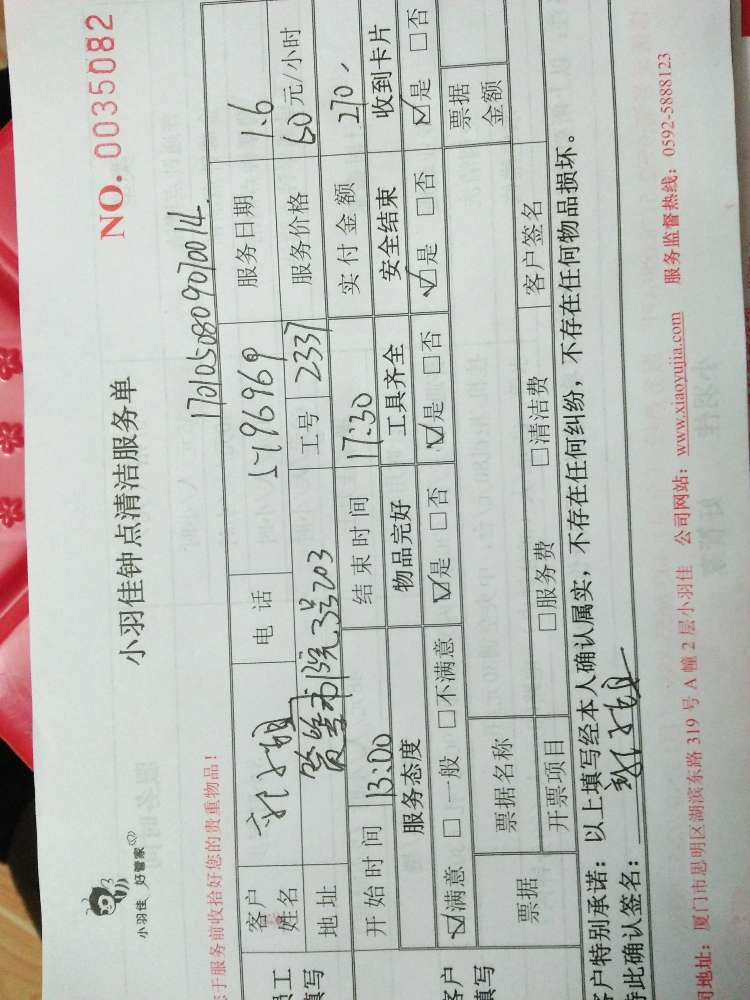 小羽佳 好管家
小羽佳钟点清洁服务单
NO. 0035082
于服务前收拾好您的贵重物品!
1701050809070014
客户姓名 小姐 电话 5796969 服务日期 1.6
地址 筼筜书院3号203 工号 2337 服务价格 60元/小时
开始时间 13:00 结束时间 17:30 实付金额 270.
服务态度 物品完好 工具齐全 安全结束 收到卡片
☑满意 □一般 □不满意 ☑是 □否 ☑是 □否 ☑是 □否 ☑是 □否
票据 票据名称 票据金额
开票项目 □服务费 □清洁费 客户签名
户特别承诺:以上填写经本人确认属实,不存在任何纠纷,不存在任何物品损坏。
此确认签名:
地址:厦门市思明区湖滨东路319号A幢2层小羽佳 公司网站:www.xiaoyujia.com 服务监督热线:0592-5888123